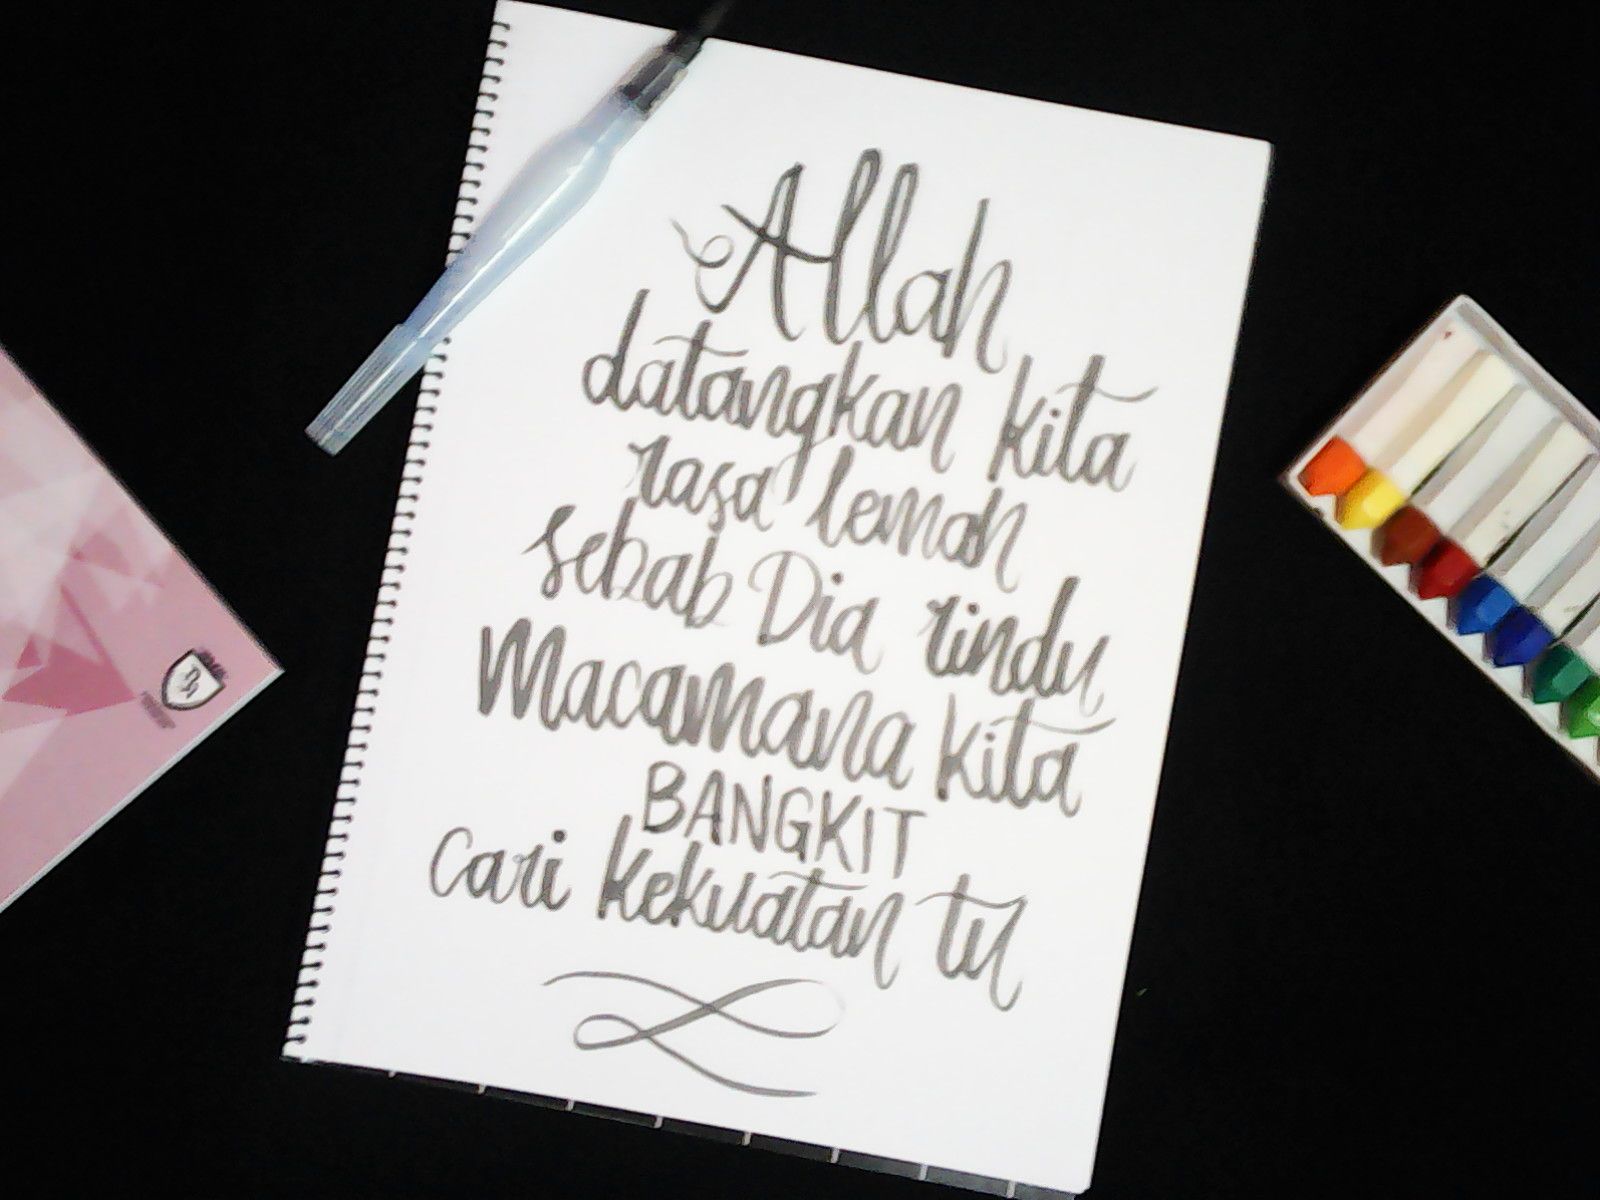 Allah
datangkan kita
rasa lemah
sebab Dia rindu
Macamana kita
BANGKIT
cari kekuatan tu